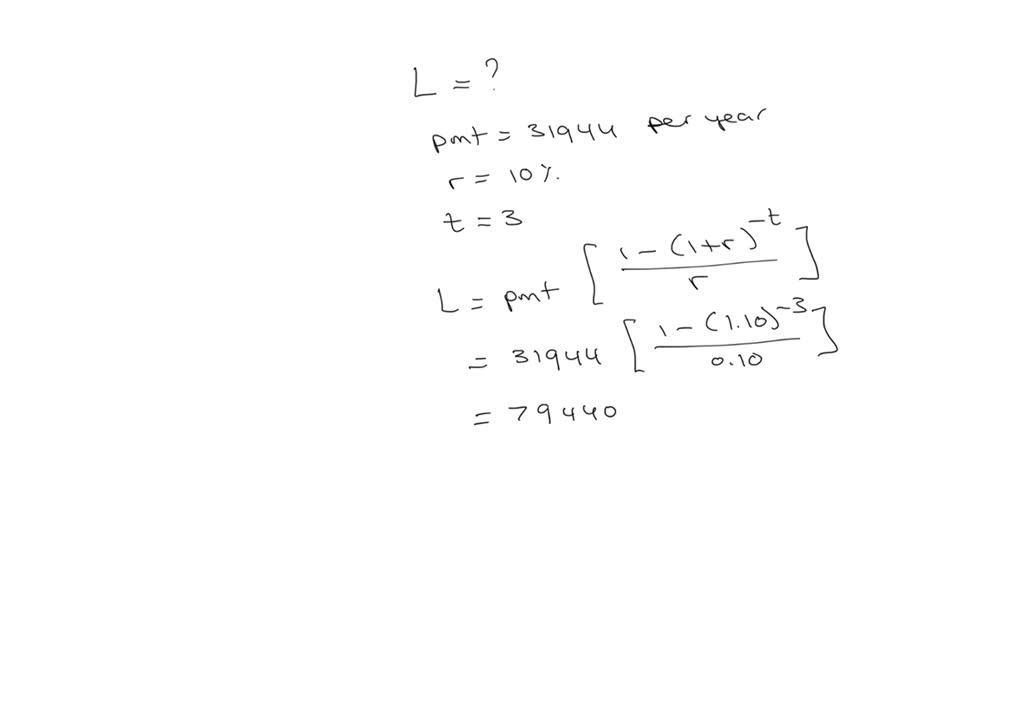 L = ?
pmt = 31944 per year
r = 10%.
t = 3
L = pmt [ (1 - (1+r)^-t) / r ]
= 31944 [ (1 - (1.10)^-3) / 0.10 ]
= 79440